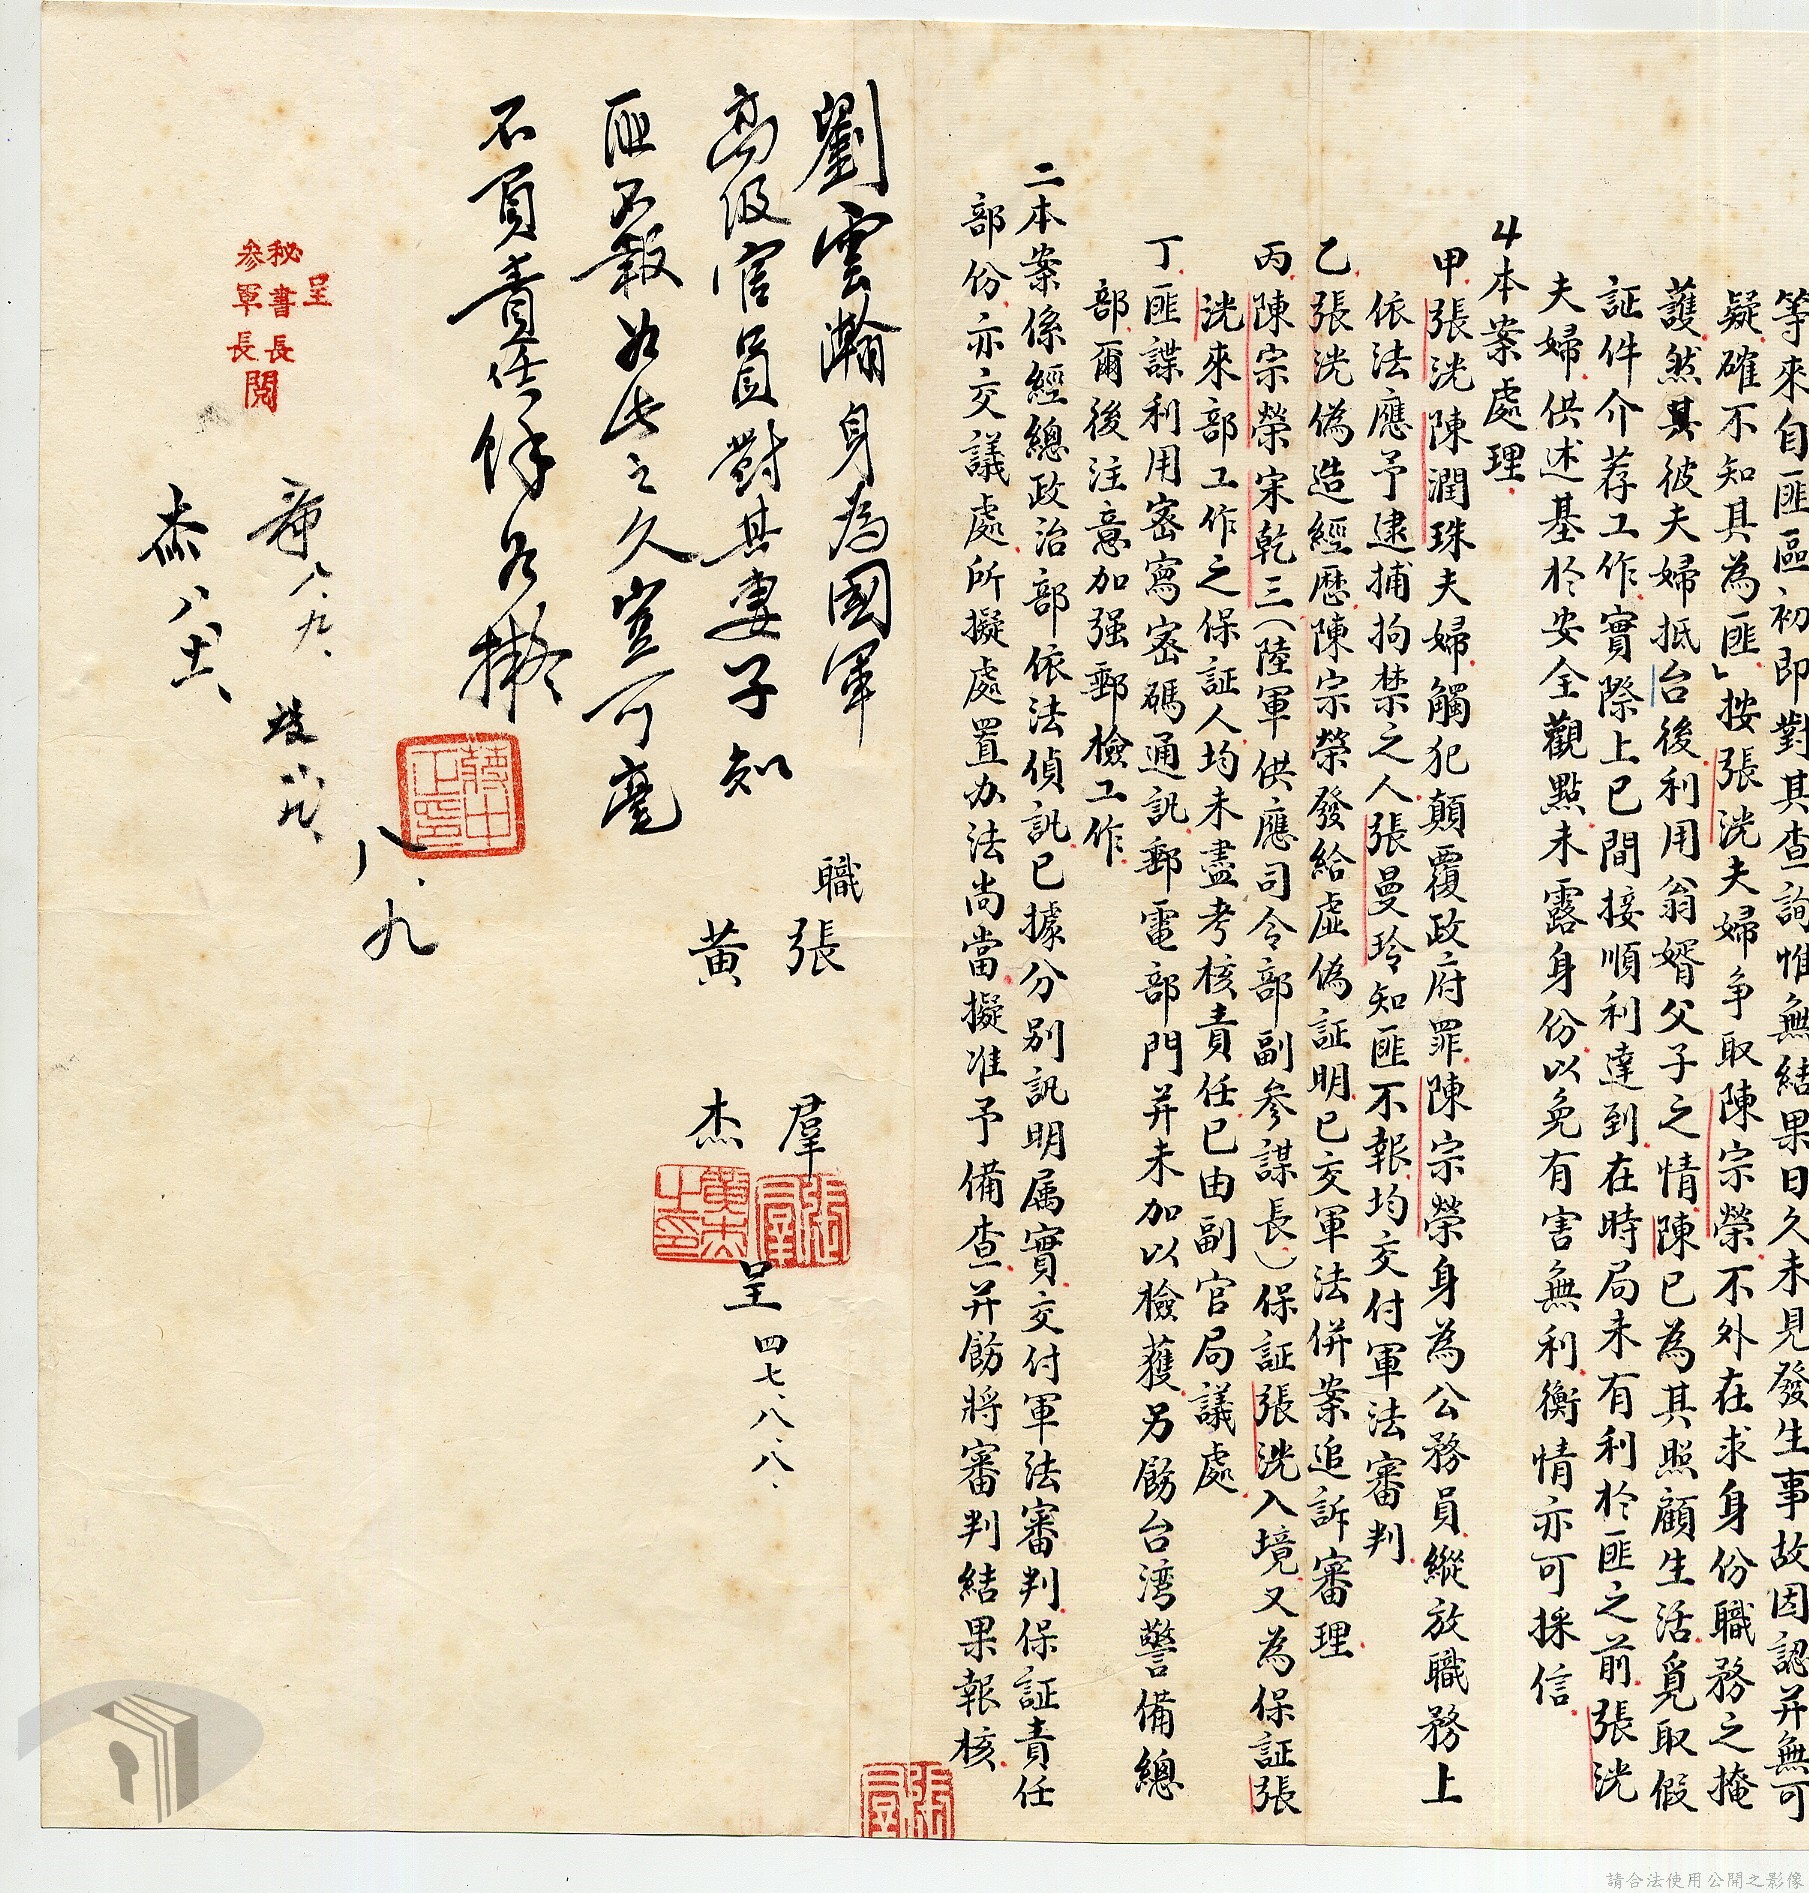 等來自匪區初即對其查詢惟無結果日久未見發生事故因認并無可
疑確不知其為匪」按張洸夫婦爭取陳宗榮不外在求身份職務之掩
護然其彼夫婦抵台後利用翁婿父子之情陳已為其照顧生活覓取假
証件介荐工作實際上已間接順利達到在時局未有利於匪之前張洸
夫婦供述基於安全觀點未露身份以免有害無利衡情亦可採信
4本案處理
甲張洸陳潤珠夫婦觸犯顛覆政府罪陳宗榮身為公務員縱放職務上
依法應予逮捕拘禁之人張曼玲知匪不報均交付軍法審判
乙張洸偽造經歷陳宗榮發給虛偽証明已交軍法併案追訴審理
丙陳宗榮宋乾三(陸軍供應司令部副參謀長)保証張洸入境又為保証張
洸來部工作之保証人均未盡考核責任已由副官局議處
丁匪諜利用密寫密碼通訊郵電部門并未加以檢獲另飭台湾警備總
部爾後注意加强郵檢工作
二本案係經總政治部依法偵訊已據分別訊明属實交付軍法審判保証責任
部份亦交議處所擬處置办法尚當擬准予備查并飭將審判結果報核
職
張 羣
黃 杰
呈 四七、八、八、
張羣
黃杰之印
劉雲瀚身為國軍
高級官員對其妻子知
匪不報如此之久豈可毫
不負責任併另擬
蔣中正印
八、九
呈
秘書長
參軍長 閱
八、九、
杰 八、十一、
張羣
請合法使用公開之影像